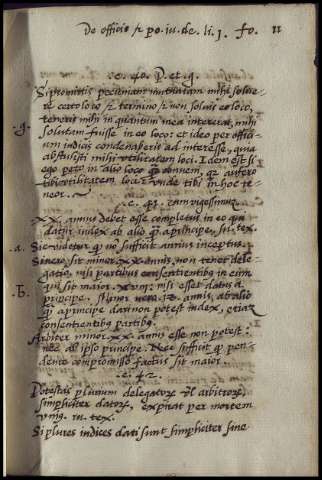 De officio & po. iu. de. li. j. fo. 11
c. 40. P. et q.
Si promittis pecuniam mutuatam mihi solue-
re certo loco & termino & non soluis eo loco,
teneris mihi in quantum mea intererat, mihi
.g. solutam fuisse in eo loco: et ideo per offici-
um iudicis condenaberis ad interesse, quia
abstulisti mihi utilitatem loci. Idem est si
ego peto in alio loco conuem. aufero
tibi utilitatem loci & unde tibi in hoc te-
neor.
c. 41. cum vigessimum
XX. annus debet esse completus in eo qui
datur iudex ab alio a principe, in. tex.
.a. Sic videtur non sufficit annus inceptus.
Si vero sit minor XX. annis, non tenet dele-
gatio, nisi partibus consentientibus in eum
.b. sit maior nisi esset datus a
principe. Si minor vero annis, ab alio
a principe dari non potest iudex, etiam
consentientibus partibus.
Arbiter minor XX. annis esse non potest:
nec ab ipso principe. Nec sufficit pen-
dente compromisso factus sit maior.
c. 42.
Potestas plurium delegatorum vel arbitrorum,
simpliciter datorum, expirat per mortem
unius. in. tex.
Si plures iudices dati sunt simpliciter sine